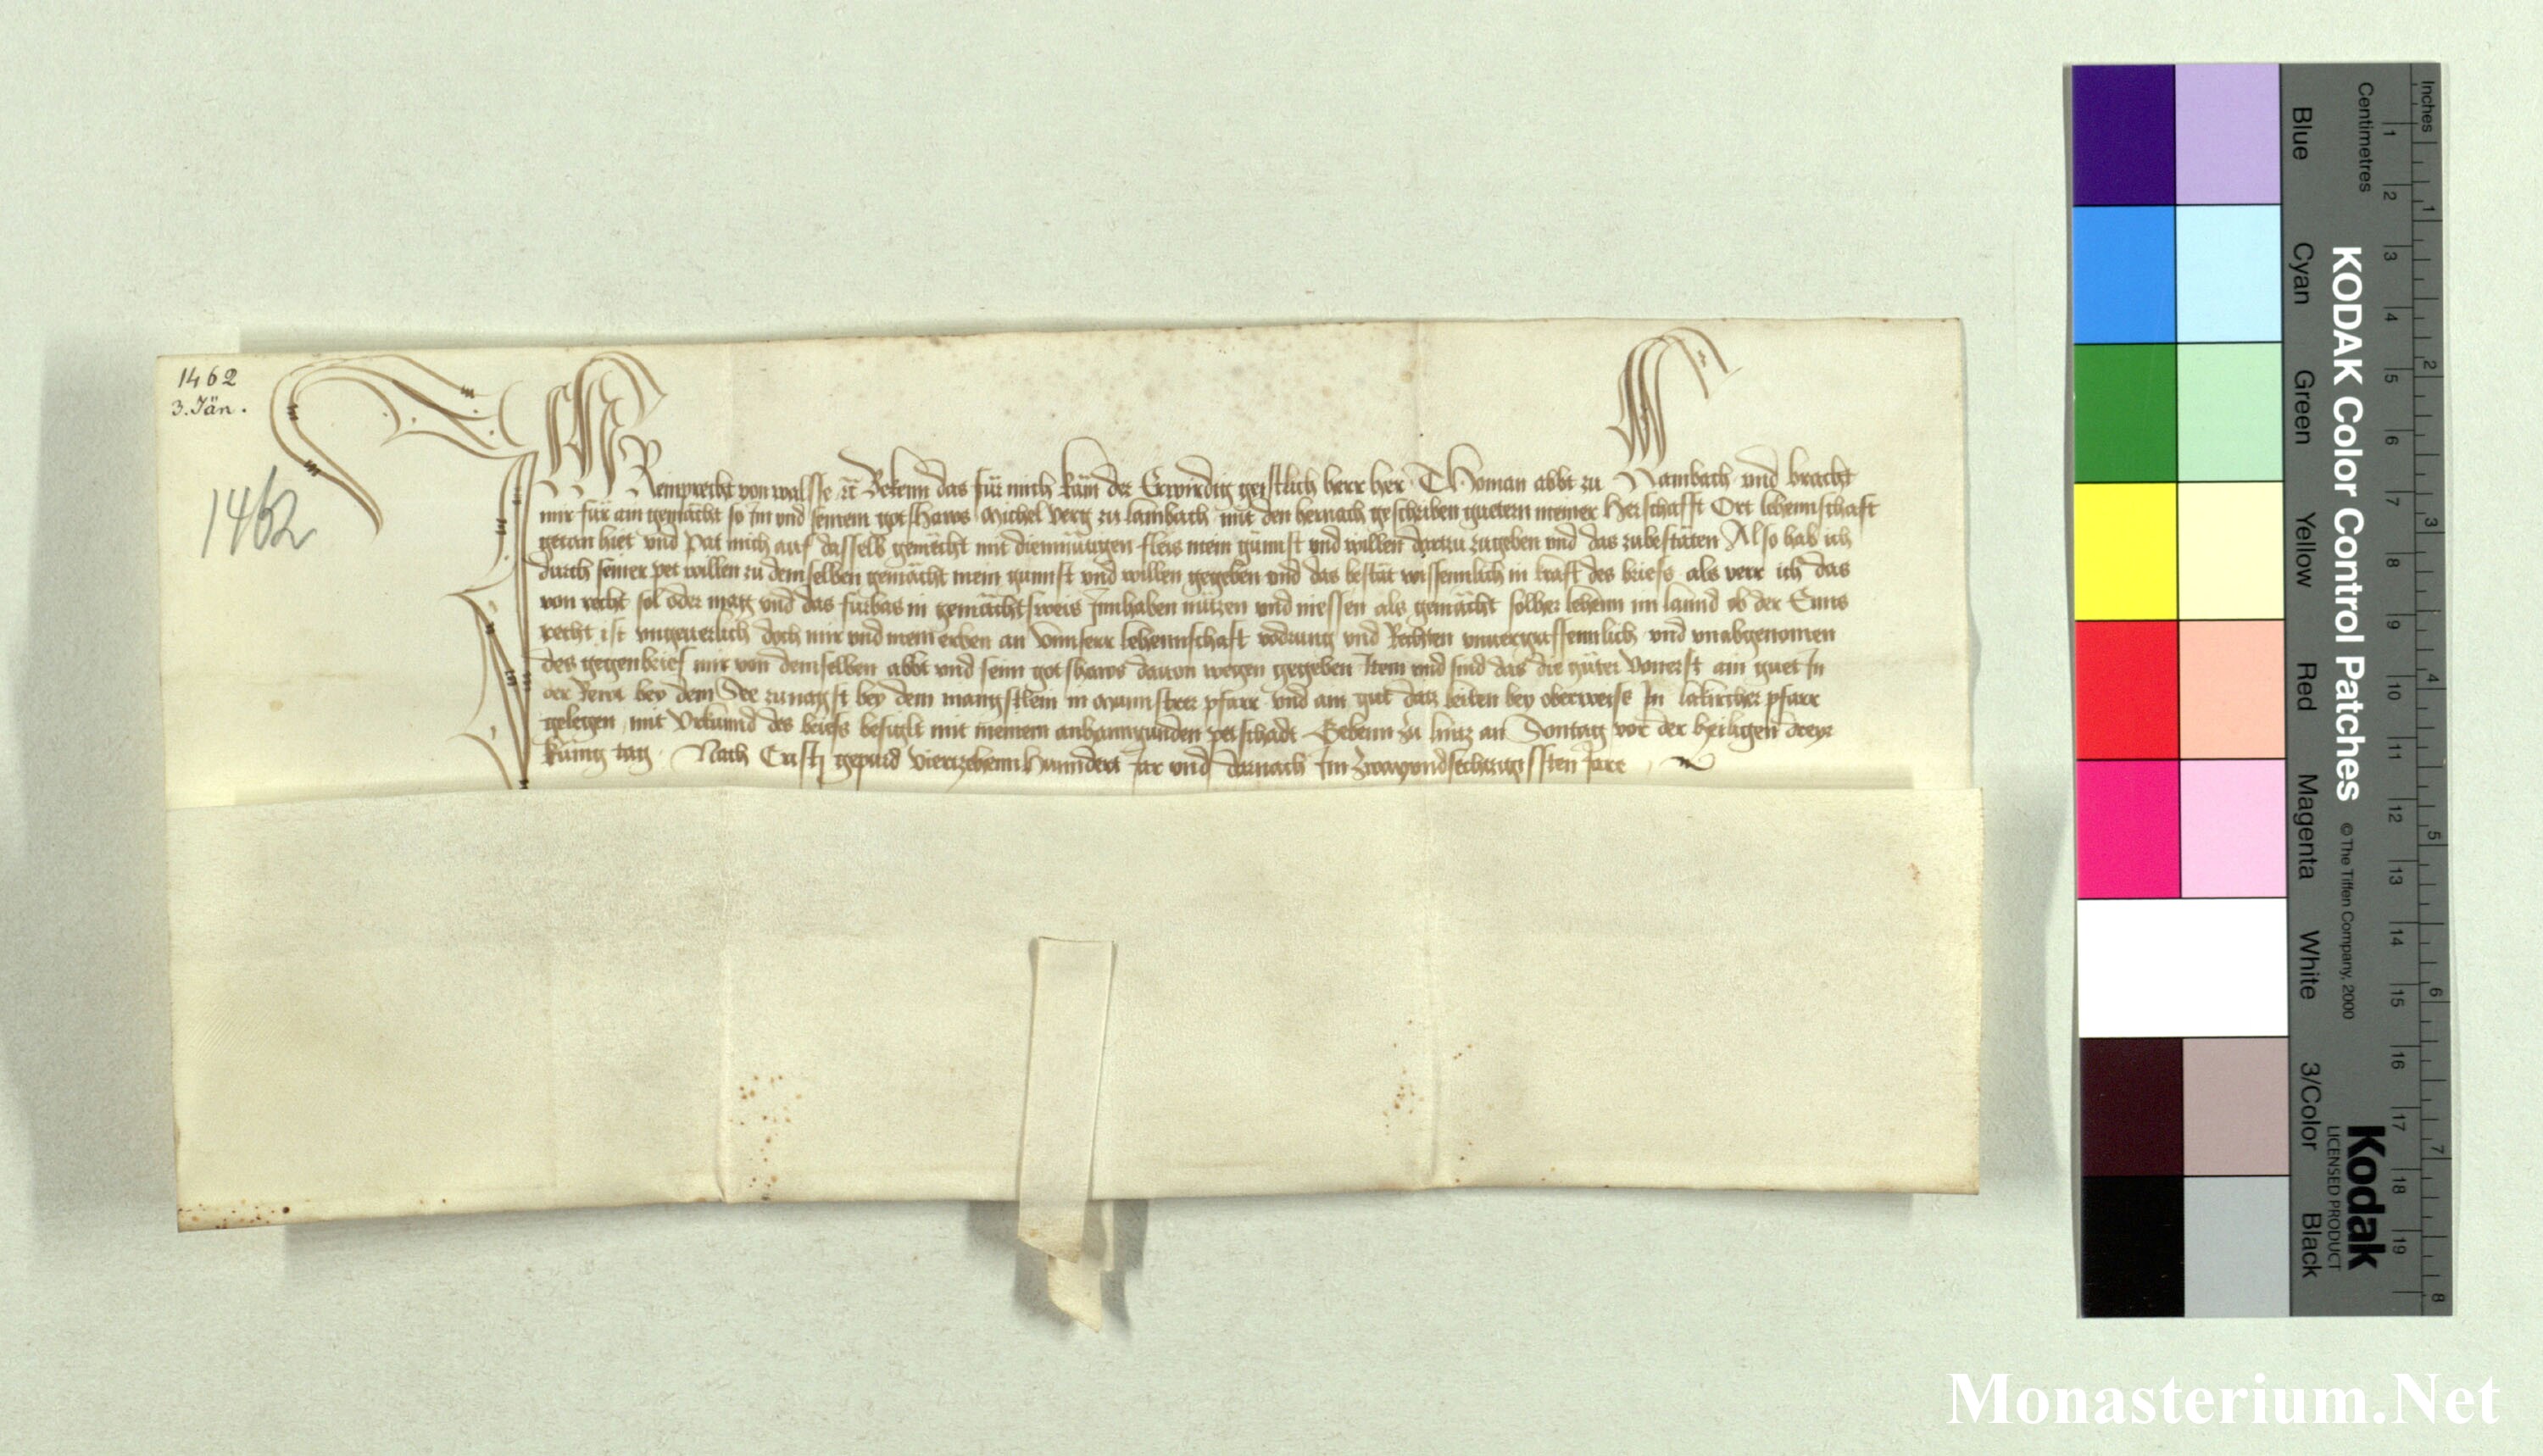 1462
3. Jän.
1462
Ich Remprecht von walsse etc Bekenn das für mich kam der Erwirdig geistlich herr her Thoman abbt zu Lambach und bracht
mir für ain gemächt so im und seinem gotshaws Michel verg zu lambach mit den hernach geschriben guetern meiner Herschafft Ort lehennschaft
getan hiet und pat mich auf dasselb gemächt mit diemütigen fleis mein gunnst und willen dartzu zugeben und das zubestäten Also hab ich
durch seiner pet willen zu demselben gemächt mein gunnst und willen gegeben und das bestät wissennlich in kraft des briefs als verr ich das
von recht sol oder mag und das fürbas in gemächtsweis Innhaben nützen und niessen als gemächt solher lehenn im lannd ob der Enns
recht ist ungeuerlich doch mir und mein erben an unnserr lehennschaft vodrung und Rechten unuergriffennlich und unabgenomen
des gegenbrief mir von demselben abbt und seinn gotshaws dauon wegen gegeben Item und sind das die güter Vonerst ain guet In
der bey dem See zunagst bey dem in Munster pfarr und ain gut datz leiten bey oberweis In lakircher pfarr
gelegen mit Vrkunnd des briefs besiglt mit meinem anhanngunden petschadt Gebenn zu lintz an Sontag vor der heiligen dreyr
kunig tag Nach Cristi gepurd viertzehennhunndert Jar und darnach Im zwayundsechtzigissten Jare
Inches
Centimetres
1 2 3 4 5 6 7 8 9 10 11 12 13 14 15 16 17 18 19
1 2 3 4 5 6 7 8
KODAK Color Control Patches
© The Tiffen Company, 2000
Kodak
LICENSED PRODUCT
Blue
Cyan
Green
Yellow
Red
Magenta
White
3/Color
Black
Monasterium.Net